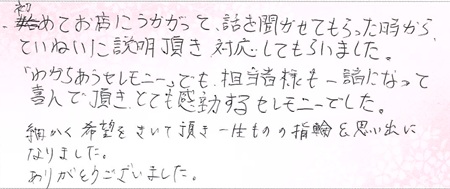 初めてお店にうかがって、話を聞かせてもらった時から
ていねいに説明頂き対応してもらいました。
「わかちあうセレモニー」でも、担当者様も一諸になって
喜んで頂き、とても感動するセレモニーでした。
細かく希望をきいて頂き一生ものの指輪&思い出に
なりました。
ありがとうございました。